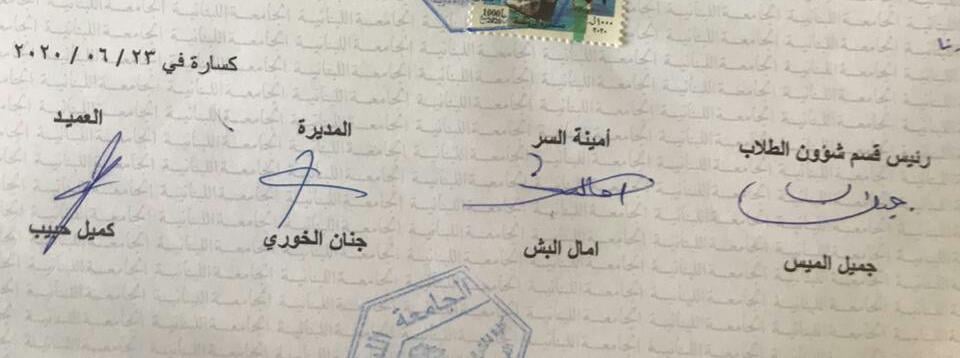 ١٠٠٠ل
٢٠٢٠
1000
2020
كسارة في ٢٣ / ٠٦ / ٢٠٢٠
رئيس قسم شؤون الطلاب
أمينة السر
المديرة
العميد
جميل الميس
امال البش
جنان الخوري
كميل حبيب
الجامعة